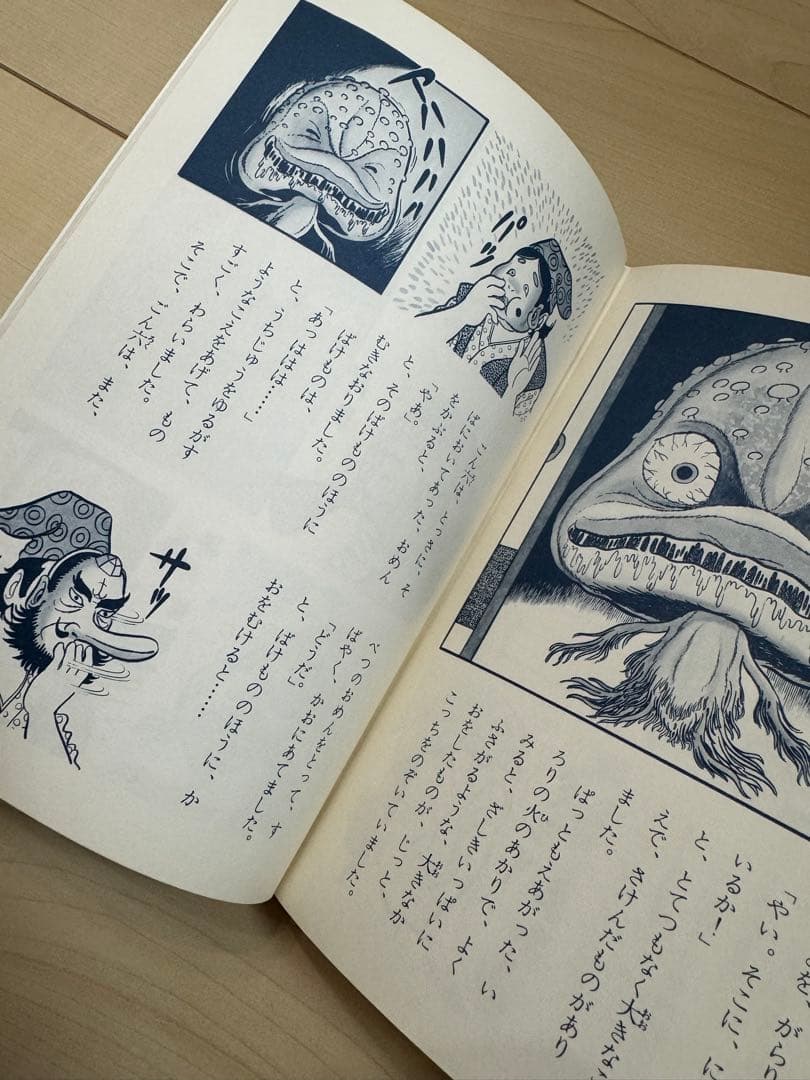 を、がらり
「やい。そこに、に
いるか！」
と、とてつもなく大きなこ
えで、さけんだものがあり
ました。
ぱっともえあがった、い
ろりの火のあかりで、よく
みると、ざしきいっぱいに
ふさがるような、大きなか
おをしたものが、じっと、
こっちをのぞいていました。
パッ
ごん六は、とっさに、そ
ばにおいてあった、おめん
をかぶると、
「やあ。」
と、そのばけもののほうに
むきなおりました。
アハハハハ
ばけものは、
「あっははは……」
と、うちじゅうをゆるがす
ようなこえをあげて、もの
すごく、わらいました。
そこで、ごん六は、また、
べつのおめんをとって、す
ばやく、かおにあてました。
「どうだ。」
と、ばけもののほうに、か
おをむけると……
サッ